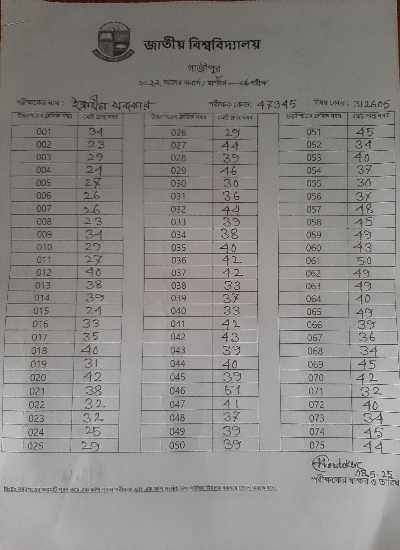 জাতীয় বিশ্ববিদ্যালয়
গাজীপুর
পরীক্ষকের নাম : পরীক্ষক কোড: 47345 বিষয় কোড: 312605
001 34 026 29 051 45
002 23 027 44 052 34
003 29 028 39 053 40
004 24 029 46 054 37
005 27 030 30 055 30
006 26 031 36 056 37
007 26 032 44 057 48
008 23 033 39 058 45
009 34 034 38 059 49
010 29 035 40 060 43
011 27 036 42 061 50
012 40 037 42 062 49
013 38 038 33 063 49
014 39 039 37 064 40
015 24 040 33 065 49
016 33 041 42 066 39
017 35 042 43 067 36
018 40 043 39 068 34
019 31 044 40 069 45
020 42 045 39 070 42
021 38 046 51 071 32
022 32 047 41 072 40
023 32 048 37 073 34
024 25 049 39 074 45
025 29 050 39 075 44
পরীক্ষকের স্বাক্ষর ও তারিখ